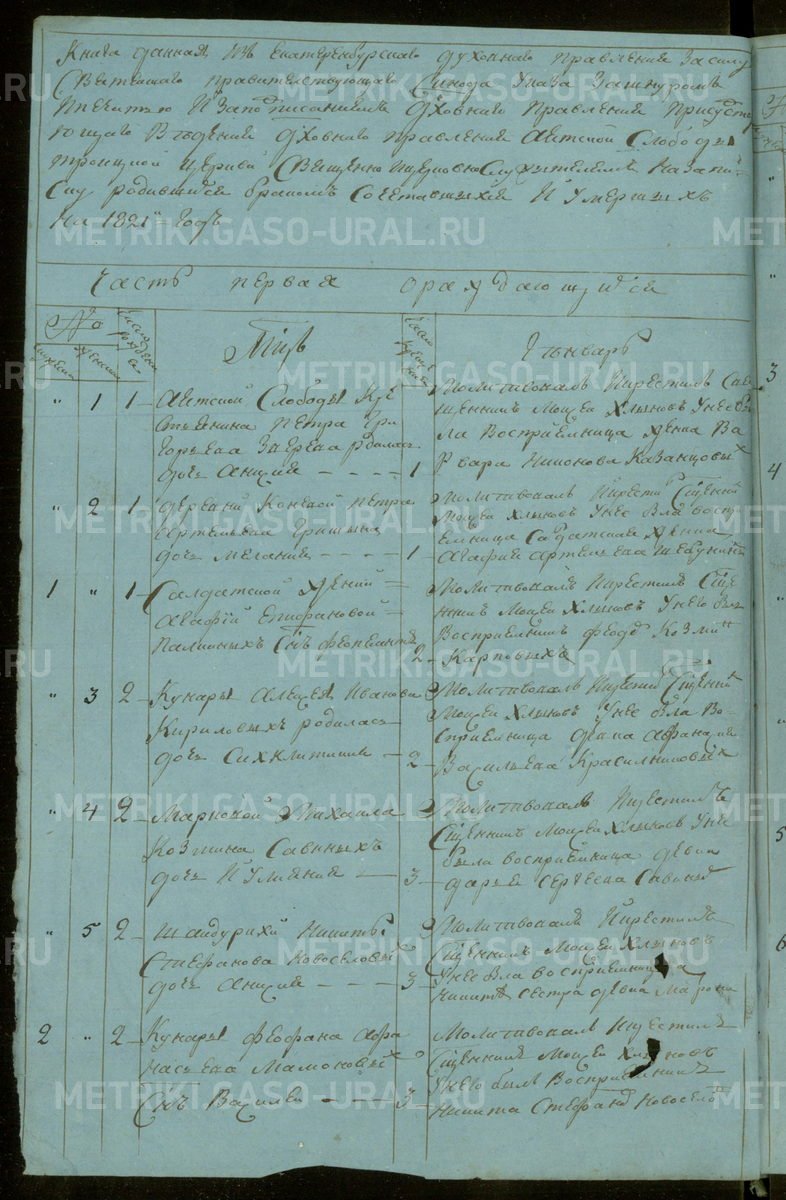 Книга данная Изъ екатеренбурскаго духовнаго правления За силу
Святейшаго правителствующаго Синода Указа Зашнуромъ
Печатью И Заподписаниемъ духовнаго правления присудству
ющаго Въведение духовнаго правления Аятской Слободы
троицкой церкви Священно церковнослужителемъ Назапи-
ску родившихся бракомъ Сочетавшихся И Умершихъ
На 1821 Годъ
Часть первая о раждающихся
No
Число рождения
Число крещения
Январь
мужеска
женска
" 1 1
Аятской Слободы Кре
стьянина Петра Гри
горьева Зверева родилась
дочь Анисия - - - - 1
Молитвовалъ И крестилъ Свя
щенникъ Моисей Хлыновъ Унее бы
ла Восприемница женка Ва
рвара Никонова Казанцовых
" 2 1
деревни Коневой Петра
Артемьева Гришина
дочь Мелания - - - - 1
Молитвовалъ И крестил Сщенни
Моисей Хлыновъ Унее Была воспри
емница Салдатская женка
Агафия Артемьева
1 " 1
Салдатской женки
Агафии Епифановой
Сынъ Феопемптъ 2
Молитвовалъ И крестилъ Сще
нникъ Моисей Хлыновъ Унего Былъ
Восприемникъ Феодо Козмин
Карповыхъ
" 3 2
Кунары Алексея Иванова
Кириловыхъ родилась
дочь Сихклитикия 2
Молитвовалъ И крестил Сщенни
Моисей Хлыновъ Унее была Во-
сприемница девка Афанасия
Васильева Красильниковых
" 4 2
Михаила
Козмина Савиныхъ
дочь Иулиания 3
Молитвовалъ И крестилъ
Сщенникъ Моисей Хлыновъ Унее
была восприемница девка
дарья Сергеева Савиных
" 5 2
Шайдурихи Никиты
Стефанова Новоселовых
дочь Анисия - - - - 3
Молитвовалъ И крестилъ
Сщенникъ Моисей Хлыновъ
Унее Была восприемница
Никите сестра девка Марфа
2 " 2
Кунары Феофана Афа
насьева Мамоновых
Сынъ Василей - - - 3
Молитвовалъ И крестилъ
Сщенникъ Моисей Хлыновъ
Унего былъ Восприемникъ
Никита Стефанов Новосело
METRIKI.GASO-URAL.RU
3
4
5
6